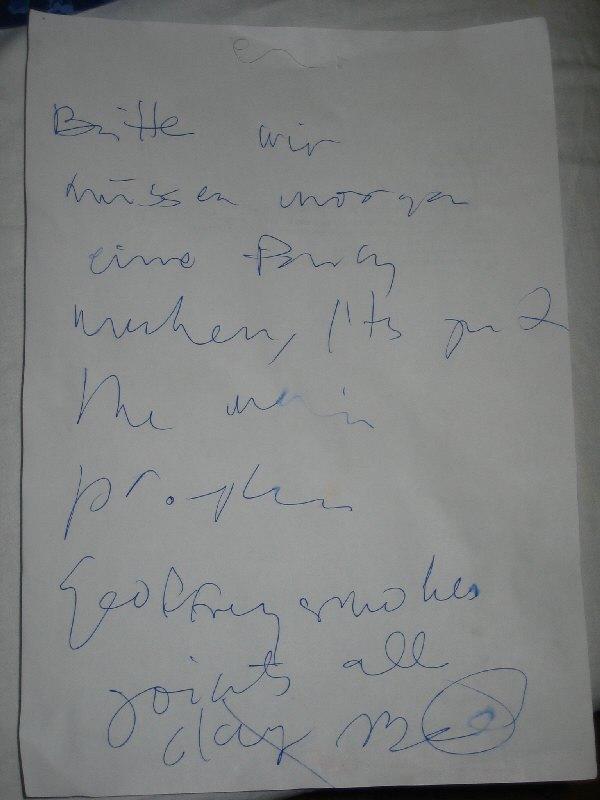 Bitte wir
müssen morgen
eine
machen, it's
the main
problem
Geoffrey smokes
joints all
day